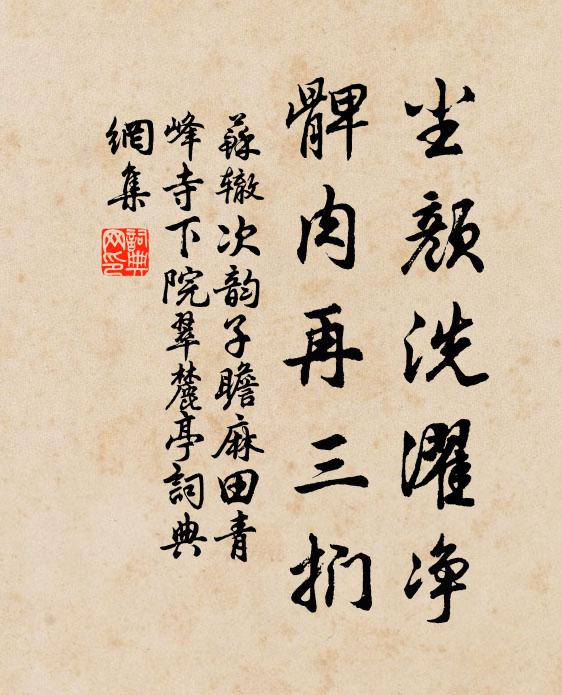 尘颜洗濯净
髀肉再三扪
苏辙次韵子瞻麻田青
峰寺下院翠麓亭詞典
網集
詞典
网印